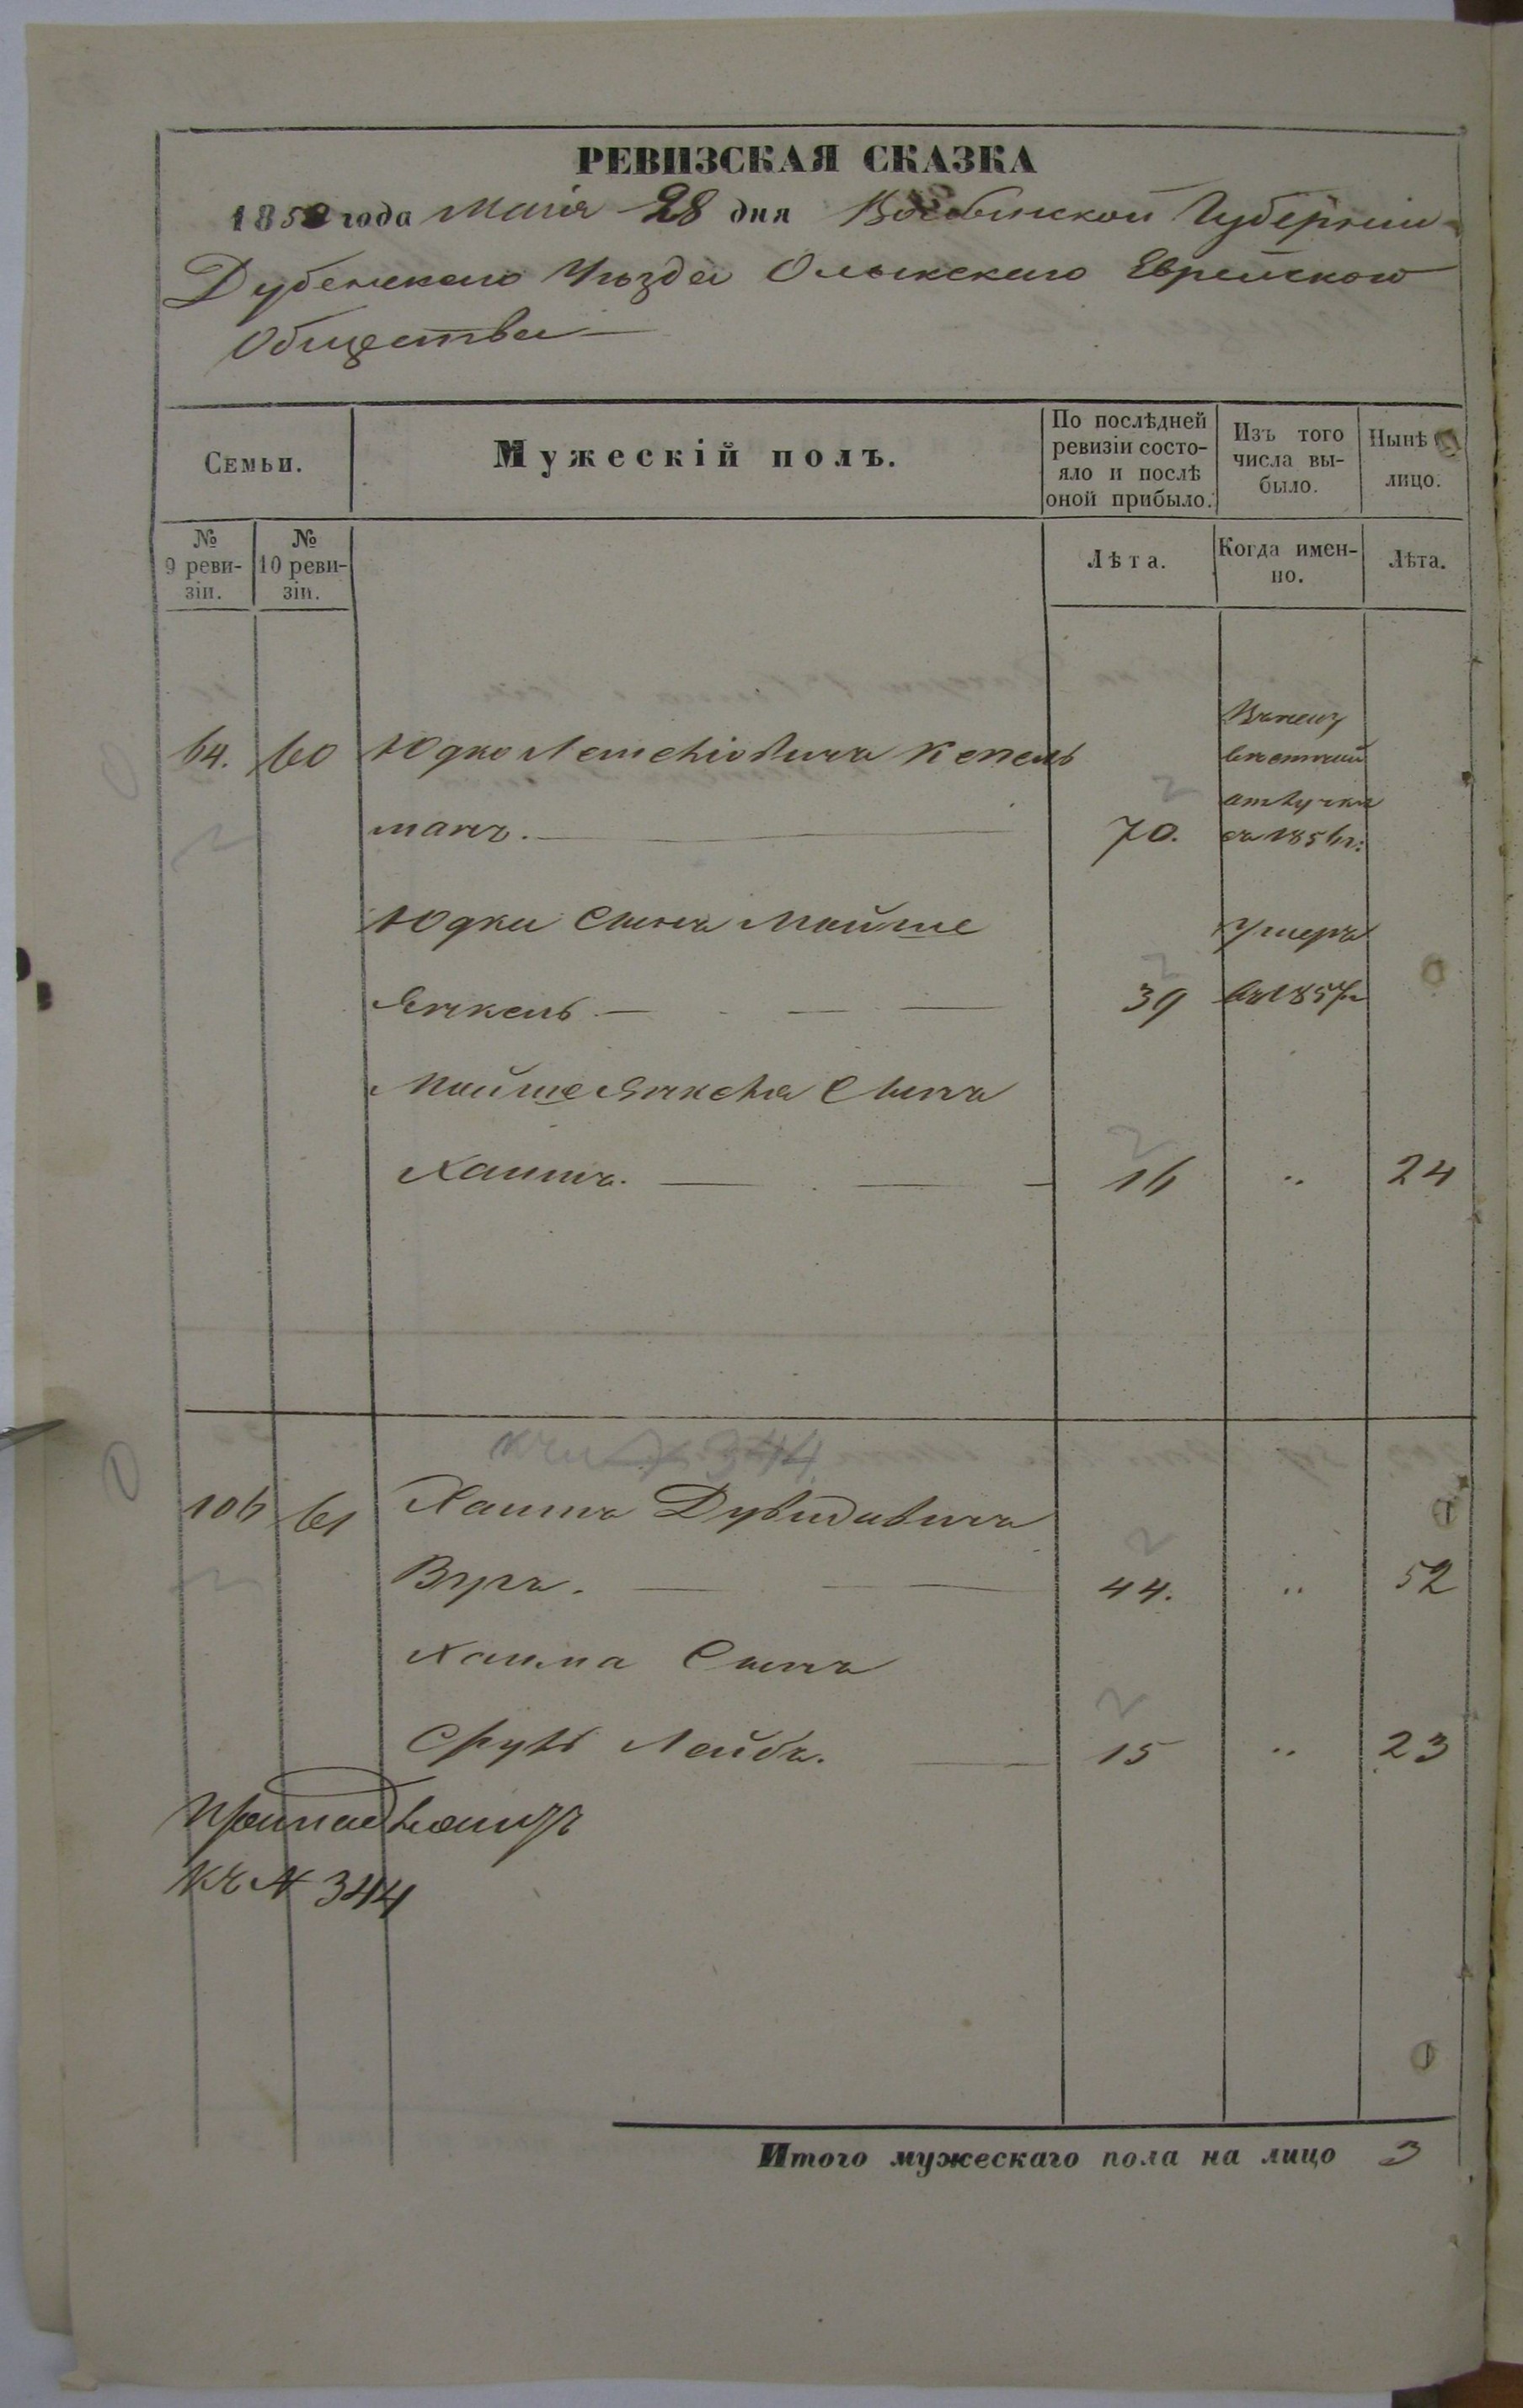 РЕВИЗСКАЯ СКАЗКА
1858 года Маія 28 дня Волынской Губерніи
Дубенскаго Уѣзда Олыкскаго Еврейскаго
Общества
Семьи.
Мужескій полъ.
По послѣдней ревизіи состо-яло и послѣ оной прибыло.
Изъ того числа вы-было.
Нынѣ лицо.
№ 9 реви-зіи.
№ 10 реви-зіи.
Лѣта.
Когда имен-но.
Лѣта.
64. 60 Юдко
манъ. 70. съ 1856 г:
отлучки
Юдки Сынъ Мойше Умеръ
Янкель 39 въ 1857 г
Мойше Янкеля Сынъ
Хаимъ. 16 " 24
344
106 61 Хаимъ Дувидовичъ
44. " 52
Хаима Сынъ
Сруль Лейбъ. 15 " 23
къ № 344
Итого мужескаго пола на лицо 3